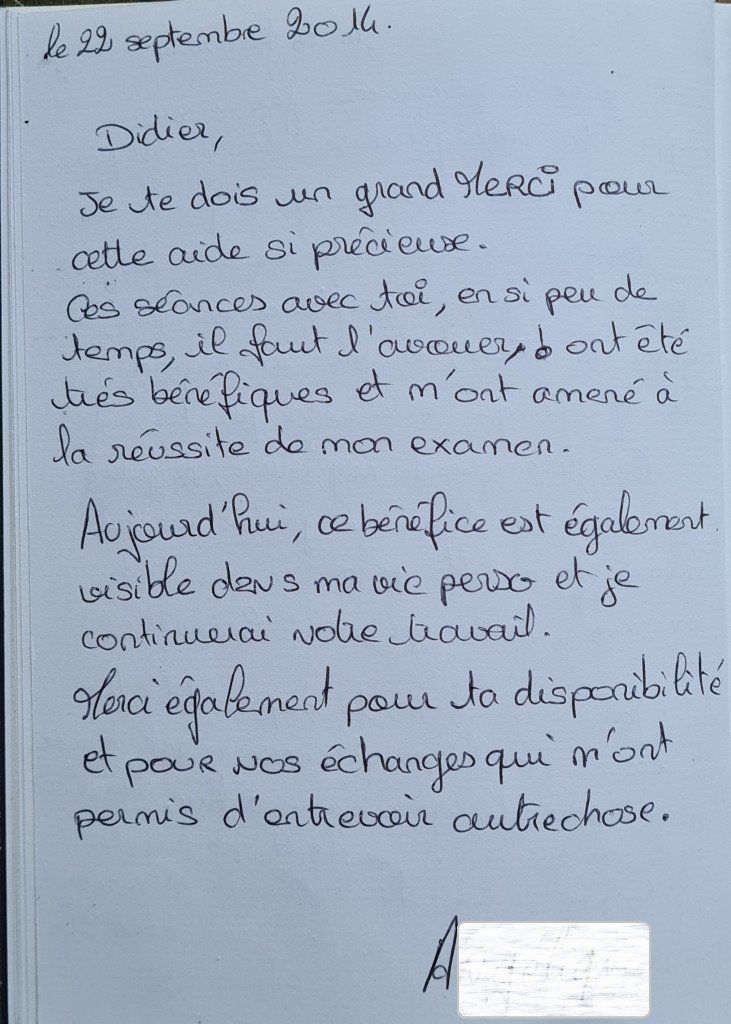 le 22 septembre 2014.
Didier,
Je te dois un grand MERCi pour
cette aide si précieuse.
Ces séances avec toi, en si peu de
temps, il faut l'avouer, ont été
très bénéfiques et m'ont amené à
la réussite de mon examen.
Aujourd'hui, ce bénéfice est également
visible dans ma vie perso et je
continuerai notre travail.
Merci également pour ta disponibilité
et pour nos échanges qui m'ont
permis d'entrevoir autrechose.
A